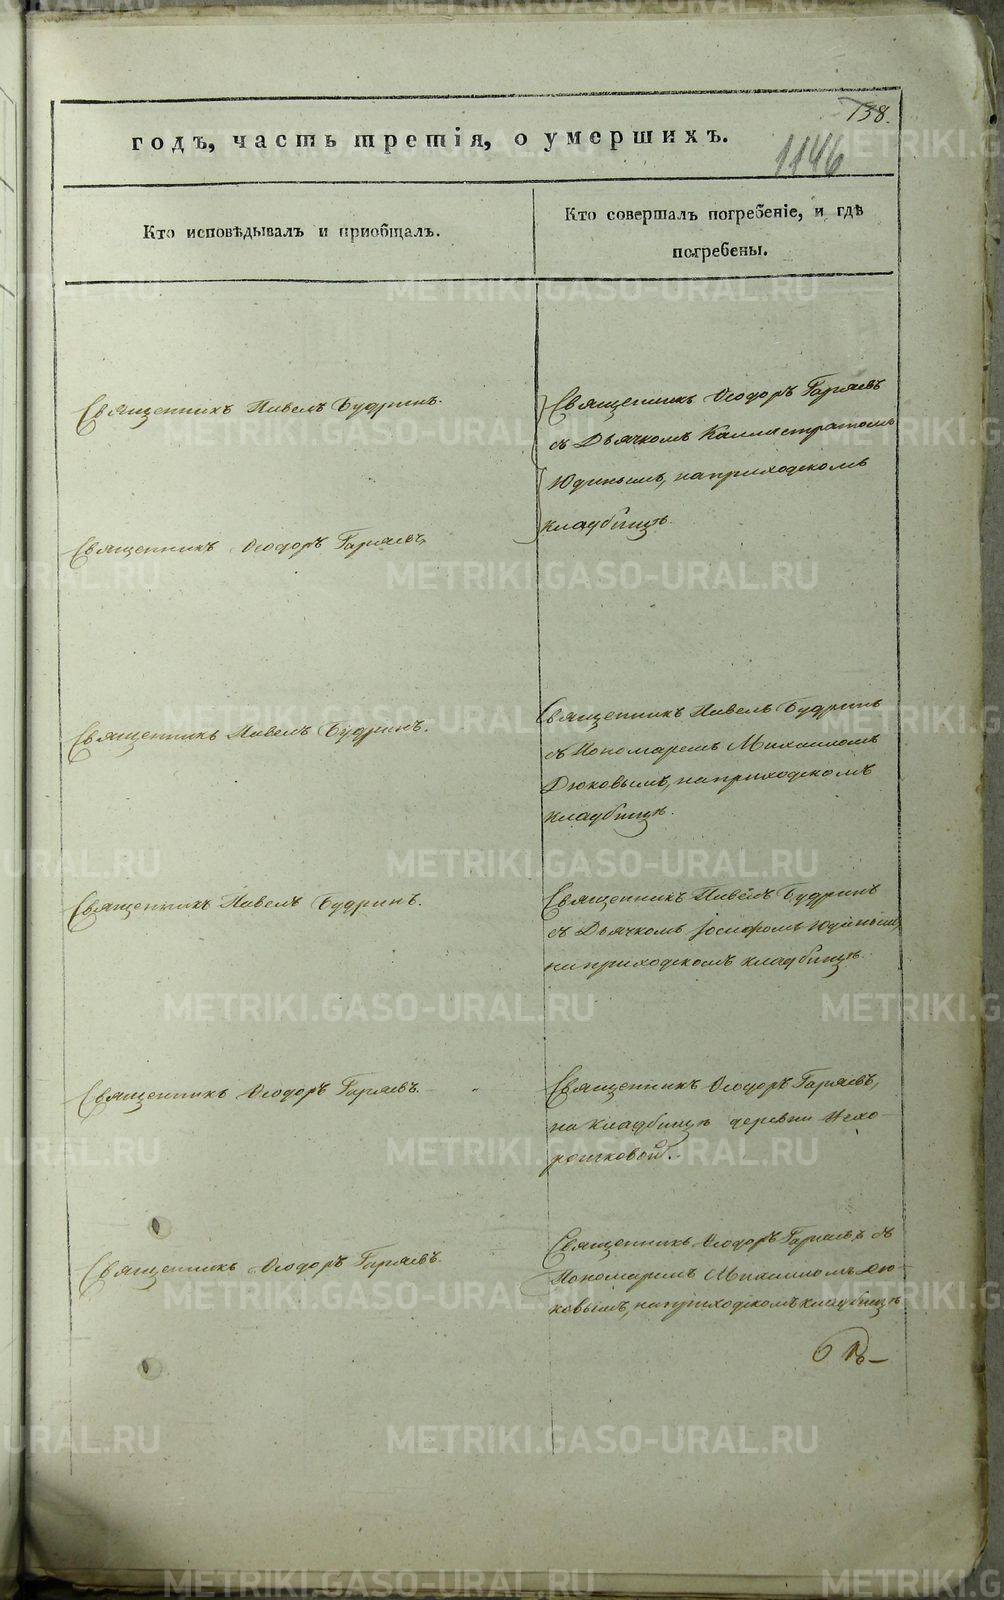 138.
годъ, часть третія, о умершихъ.
1146
Кто исповѣдывалъ и пріобщалъ.
Кто совершалъ погребеніе, и гдѣ
погребены.
Священникъ Павелъ Будринъ.
Священникъ Ѳеодоръ Гаряевъ
съ Дьячкомъ Каллистратомъ
Юдинымъ, на приходскомъ
кладбищѣ.
Священникъ Ѳеодоръ Гаряевъ.
Священникъ Павелъ Будринъ.
Священникъ Павелъ Будринъ
съ Пономаремъ Михаиломъ
Дюковымъ, на приходскомъ
кладбищѣ.
Священникъ Павелъ Будринъ.
Священникъ Павелъ Будринъ
съ Дьячкомъ Іосифомъ Юдинымъ,
на приходскомъ кладбищѣ.
Священникъ Ѳеодоръ Гаряевъ.
Священникъ Ѳеодоръ Гаряевъ,
на кладбищѣ деревни
Священникъ Ѳеодоръ Гаряевъ.
Священникъ Ѳеодоръ Гаряевъ съ
Пономаремъ Михаиломъ Дю-
ковымъ, на приходскомъ кладбищѣ
METRIKI.GASO-URAL.RU